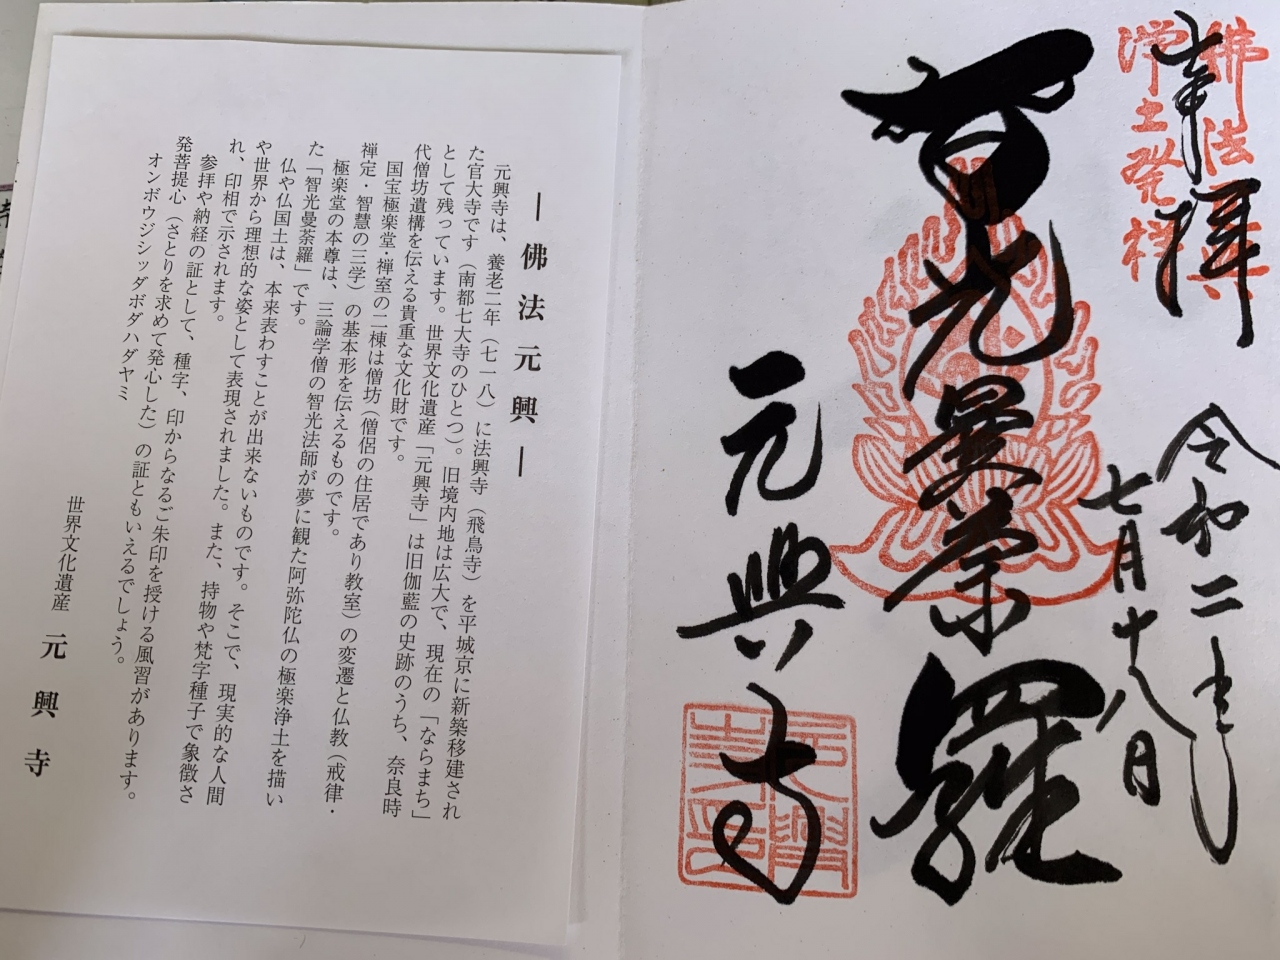 奉拝
佛法元興
浄土発祥
令和二年
七月十八日
智光曼荼羅
元興寺
―佛法元興―
元興寺は、養老二年（七一八）に法興寺（飛鳥寺）を平城京に新築移建され
た官大寺です（南都七大寺のひとつ）。旧境内地は広大で、現在の「ならまち」
として残っています。世界文化遺産「元興寺」は旧伽藍の史跡のうち、奈良時
代僧坊遺構を伝える貴重な文化財です。
国宝極楽堂・禅室の二棟は僧坊（僧侶の住居であり教室）の変遷と仏教（戒律・
禅定・智慧の三学）の基本形を伝えるものです。
極楽堂の本尊は、三論学僧の智光法師が夢に観た阿弥陀仏の極楽浄土を描い
た「智光曼荼羅」です。
仏や仏国土は、本来表わすことが出来ないものです。そこで、現実的な人間
や世界から理想的な姿として表現されました。また、持物や梵字種子で象徴さ
れ、印相で示されます。
参拝や納経の証として、種字、印からなるご朱印を授ける風習があります。
発菩提心（さとりを求めて発心した）の証ともいえるでしょう。
オンボウジシッダボダハダヤミ
世界文化遺産 元興寺